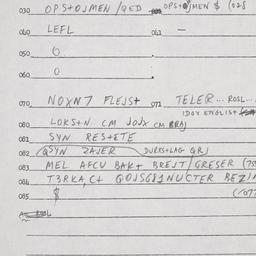 030 OPSTOJMEN /QED OPSTOJMEN $ (028
040 LEFL 041 —
050 0
060 0
070 NOXN7 FLEJST 071 TELER... ROSL...
IDOX ENGLIST
080 LOKSTN CM JOJX CM BRAJ
081 SYN RESTETE
082 (QSYN ZAJER DURKSTLAG QRJ
083 MEL AFCU BAKT BREJT/GRESER (75
084 T3RKA, CT QOJSG81NUCTER BEZIN
085 $ (077